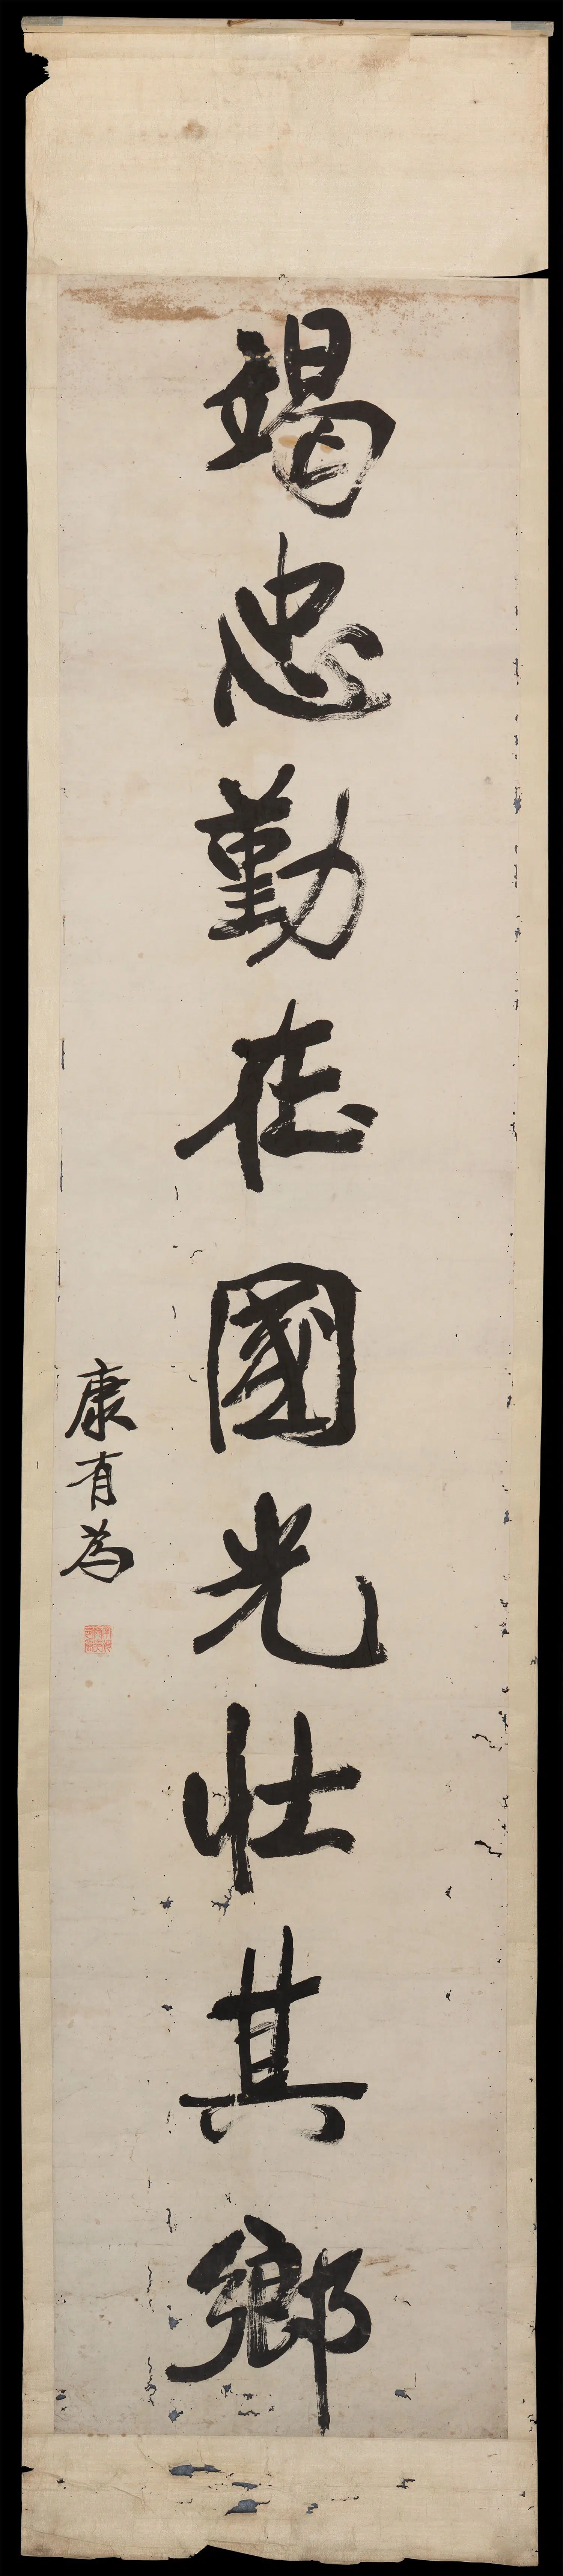 竭忠勤在國光壯其鄉
康有為